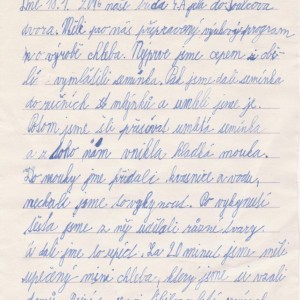 Dne 18.1. 2010 naše třída 4.A jela do Toulcova
dvora. Měli pro nás připravený výukový program
o výrobě chleba. Nejprve jsme cepem z obi-
lí vymlátili semínka. Pak jsme dali semínka
do ručních mlýnků a umleli jsme je.
Potom jsme šli přesívat umletá semínka
a z toho nám vznikla hladká mouka.
Do mouky jsme přidali kvasnice a vodu,
nechali jsme to vykynout. Po vykynutí
těsta jsme z něj udělali různé tvary
a dali jsme to upéct. Za 20 minut jsme měli
upečený mini chleba, který jsme si vzali
domů.